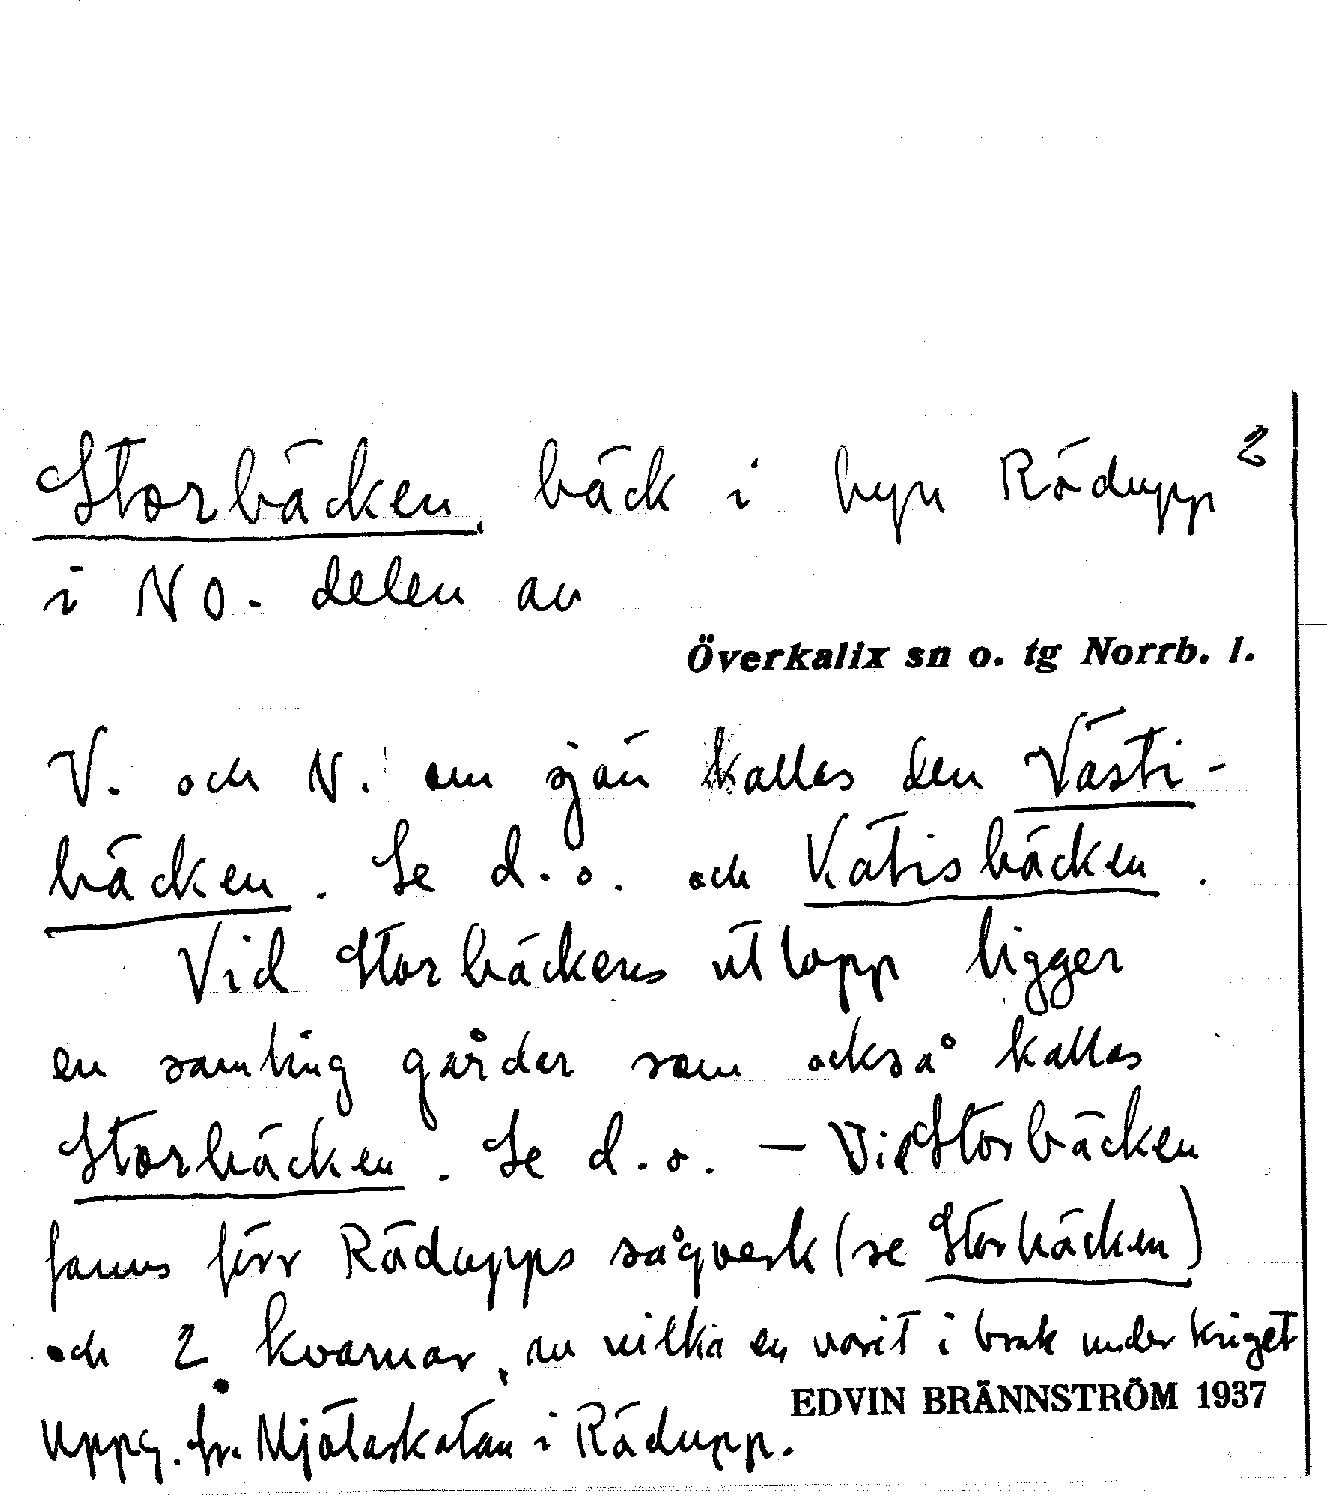 Storbäcken, bäck i byn Rödupp 2
i NO. delen av
Överkalix sn o. tg Norrb. l.
V. och N. om sjön kallas den Västi-
bäcken. Se d.o. och Vätisbäcken.
Vid Storbäckens utlopp ligger
en samling gårder som också kallas
Storbäcken. Se d.o. – Vid Storbäcken
fanns förr Rödupps sågverk (se Storbäcken)
och 2 kvarnar, av vilka en varit i bruk under kriget
EDVIN BRÄNNSTRÖM 1937
Uppg. fr. i Rödupp.